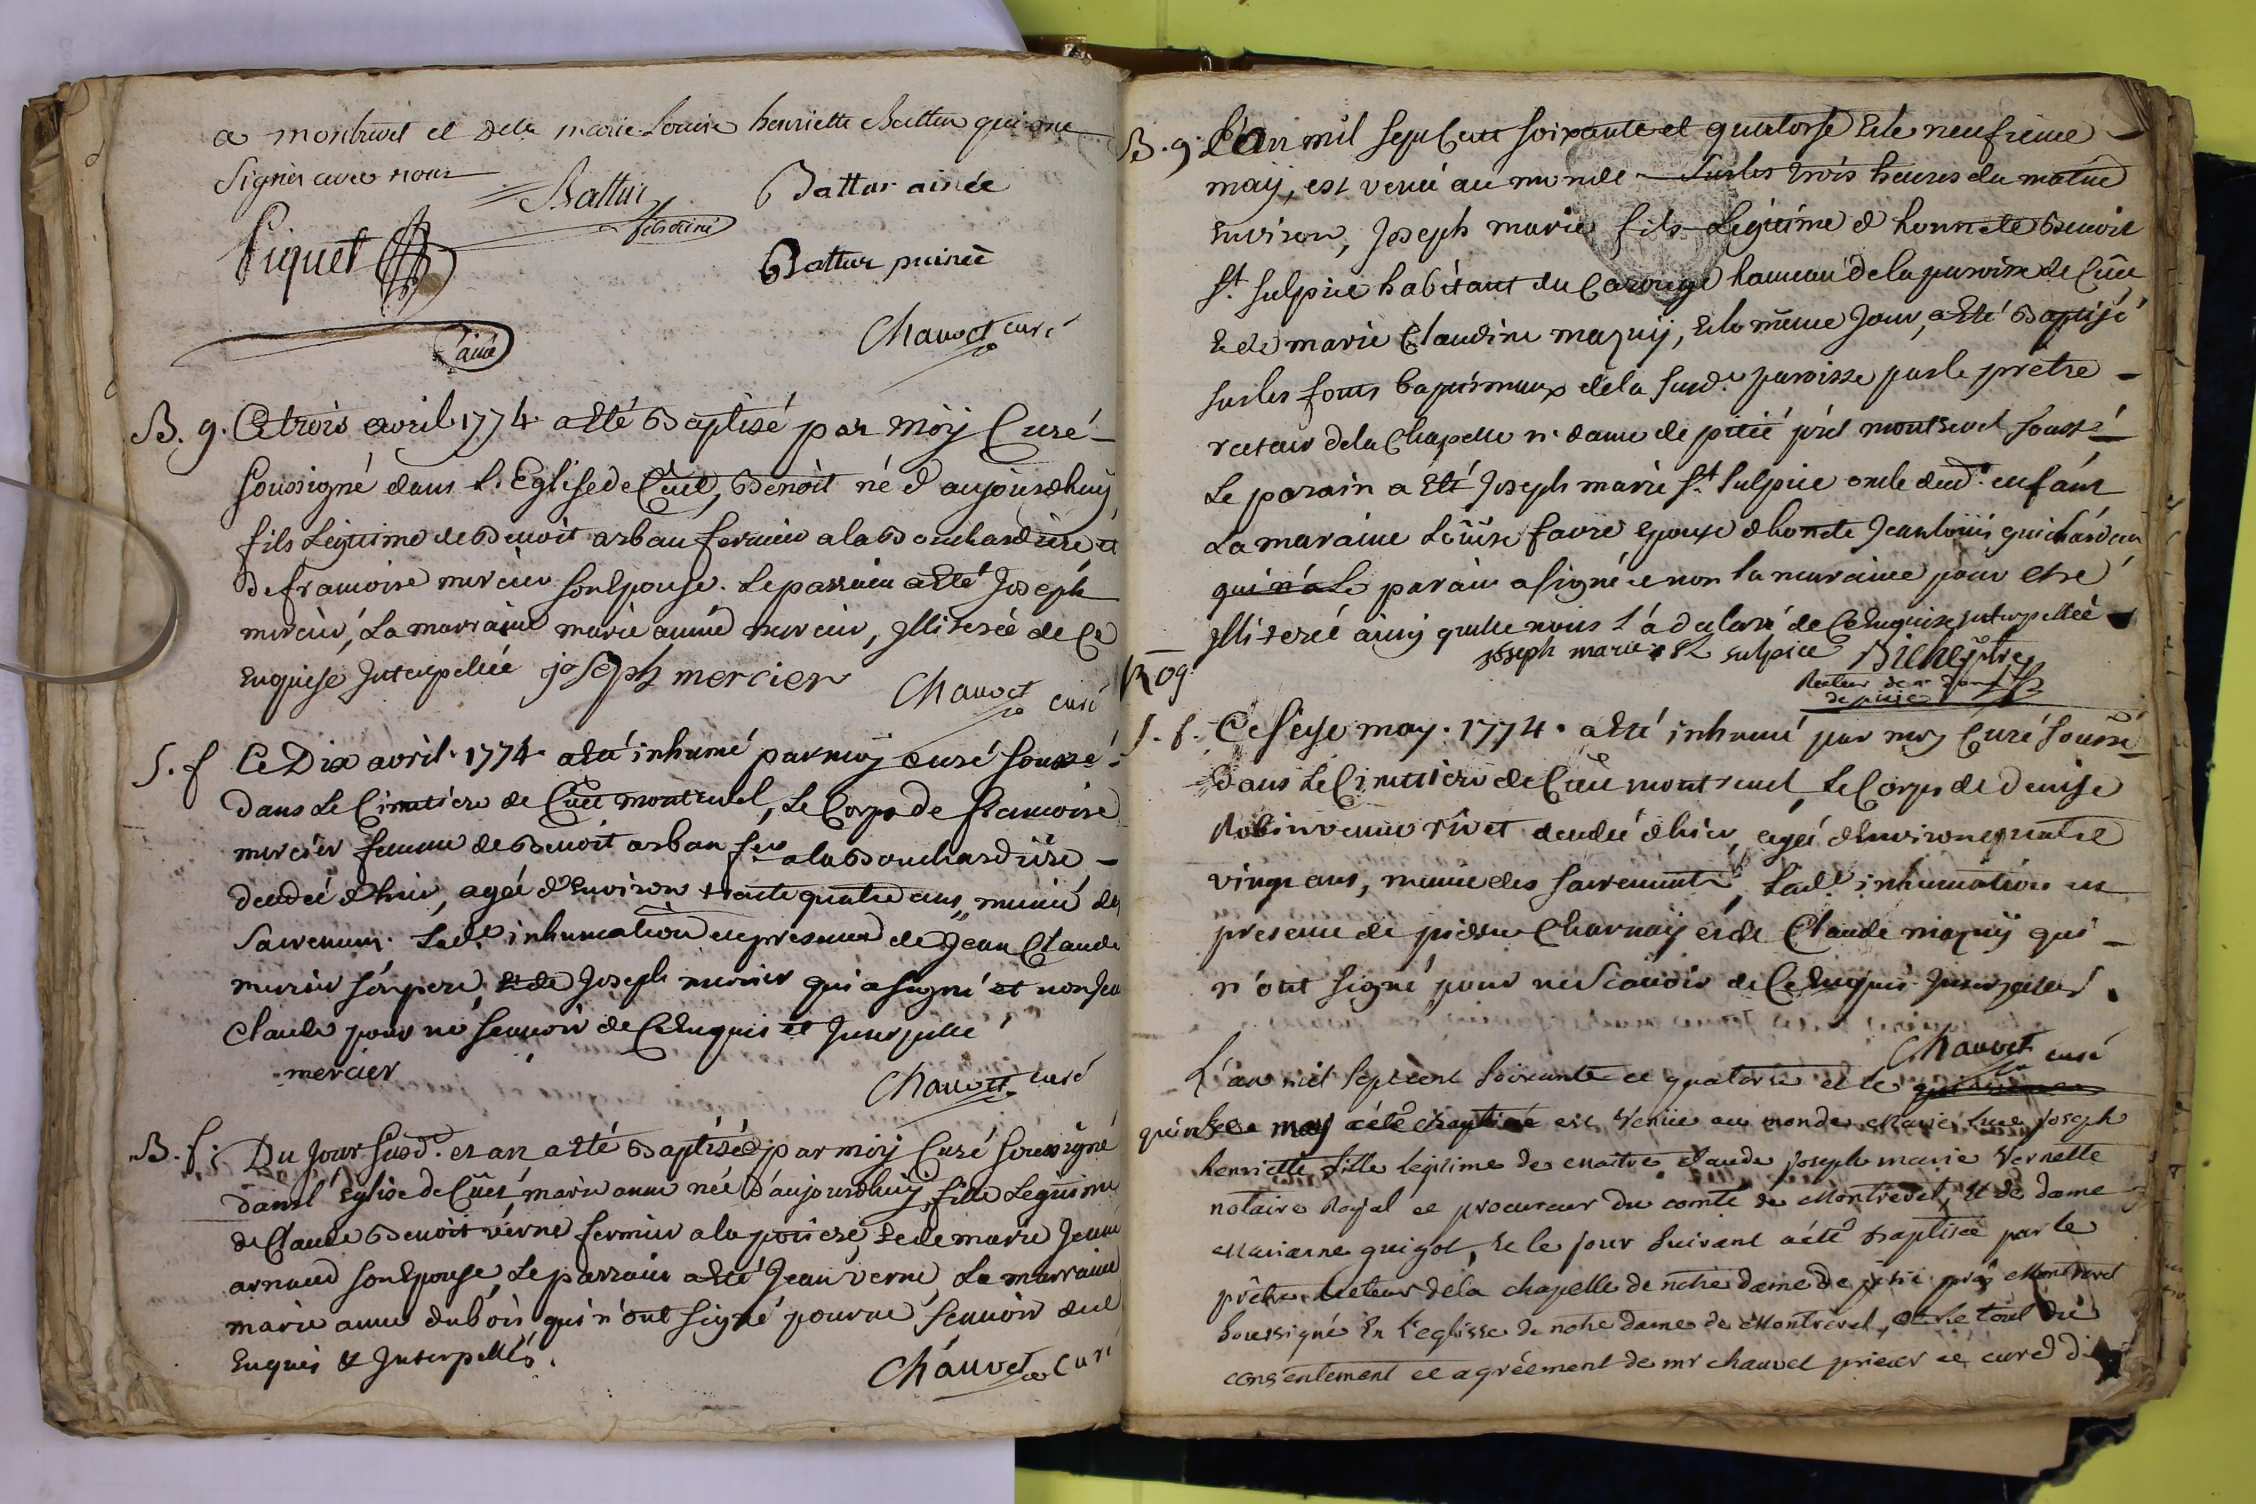 a montrevel et delle marie Louise henriette Battur qui ont
signés avec nous
Battur
fils ainé
Battur ainée
Piquet
Battur puinée
Chauvet curé
L'ainé
B. g. Ce trois avril 1774 a eté Baptisé par moÿ Curé
soussigné dans L'Eglise de Cuet, Benoit né d'aujourdhuy
fils Légitime de Benoit arban fermier a la Bouchardiere et
de francoise mercier son Epouse. Le parrain a eté Joseph
mercier, La marraine marie anne mercier, illiterée de ce
Enquise Interpellée joseph mercier
Chauvet curé
S. f Ce Dix avril 1774 a eté inhumé par moy curé soussé
dans Le Cimetiere de Cuet montrevel, Le Corps de francoise
mercier femme de Benoit arban fer a la Bouchardiere
decedée d'hier, agée d'Environ trente quatre ans, munie des
sacremens. Lad. inhumation en presence de Jean Claude
mercier son pere, et de Joseph mercier qui a signé et non Jean
Claude pour ne scavoir de ce Enquis et Interpellé
mercier
Chauvet curé
B. f. Du Jour susd. et an a eté Baptisée par moÿ Curé soussigné
dans L'Eglise de Cuet, marie anne née d'aujourdhuy, fille Legitime
de Claude Benoit verne fermier a la potiere, et de marie Jeanne
arnaud son Epouse, Le parrain a eté Jean verne, La marraine
marie anne dubois qui n'ont signé pour ne scavoir de ce
Enquis et Interpellés.
Chauvet curé
B. g. L'an mil sept Cent soixante et quatorse Et le neufieme
may, est venu au monde sur les trois heures du matin
Environ, Joseph marie fils Légitime d'honnete Benoit
St. Sulpice habitant du Carrouge hameau de la paroisse de Cuet
Et de marie Claudine mazuy, Et le même Jour, a Eté Baptisé
sur les fonts baptismaux de la susd. paroisse par le prêtre
recteur de la Chapelle n. dame de pitié près montrevel soussé
Le parain a Eté Joseph marie St. Sulpice oncle dud. enfant
La maraine Louise favre epouse d'honete Jean louis guichardan
qui n'a Le parain a signé et non la maraine pour etre
illiterée ainsy qu'elle nous l'a déclaré de ce Enquise interpellée
joseph marie St sulpice Biche ptre
Recteur de n dame
de pitié
S. f. Ce seize may 1774 a eté inhumé par moy Curé soussé
dans Le Cimetiere de Cuet montrevel, Le Corps de denise
Robin veuve rivet decedée d'hier, agée d'Environ quatre
vingt ans, munie des sacrements, Lad. inhumation en
presence de pierre Charnay et de Claude mazuy qui
n'ont signé pour ne scavoir de ce Enquis Interpellés.
Chauvet curé
L'an mil sept cent soixante et quatorse et le
quinse may a été baptisée est venue au monde Marie Luce Joseph
henriette fille légitime de maitre Claude joseph marie Vernette
notaire Royal et procureur du comté de Montrevel, et de dame
Marianne guigot, et le jour suivant a été baptisée par le
prêtre recteur de la chapelle de notre dame de pitié près Montrevel
soussigné En l'eglisse de notre dame de Montrevel, et le tout du
consentement et agréement de mr chauvet prieur et curé d